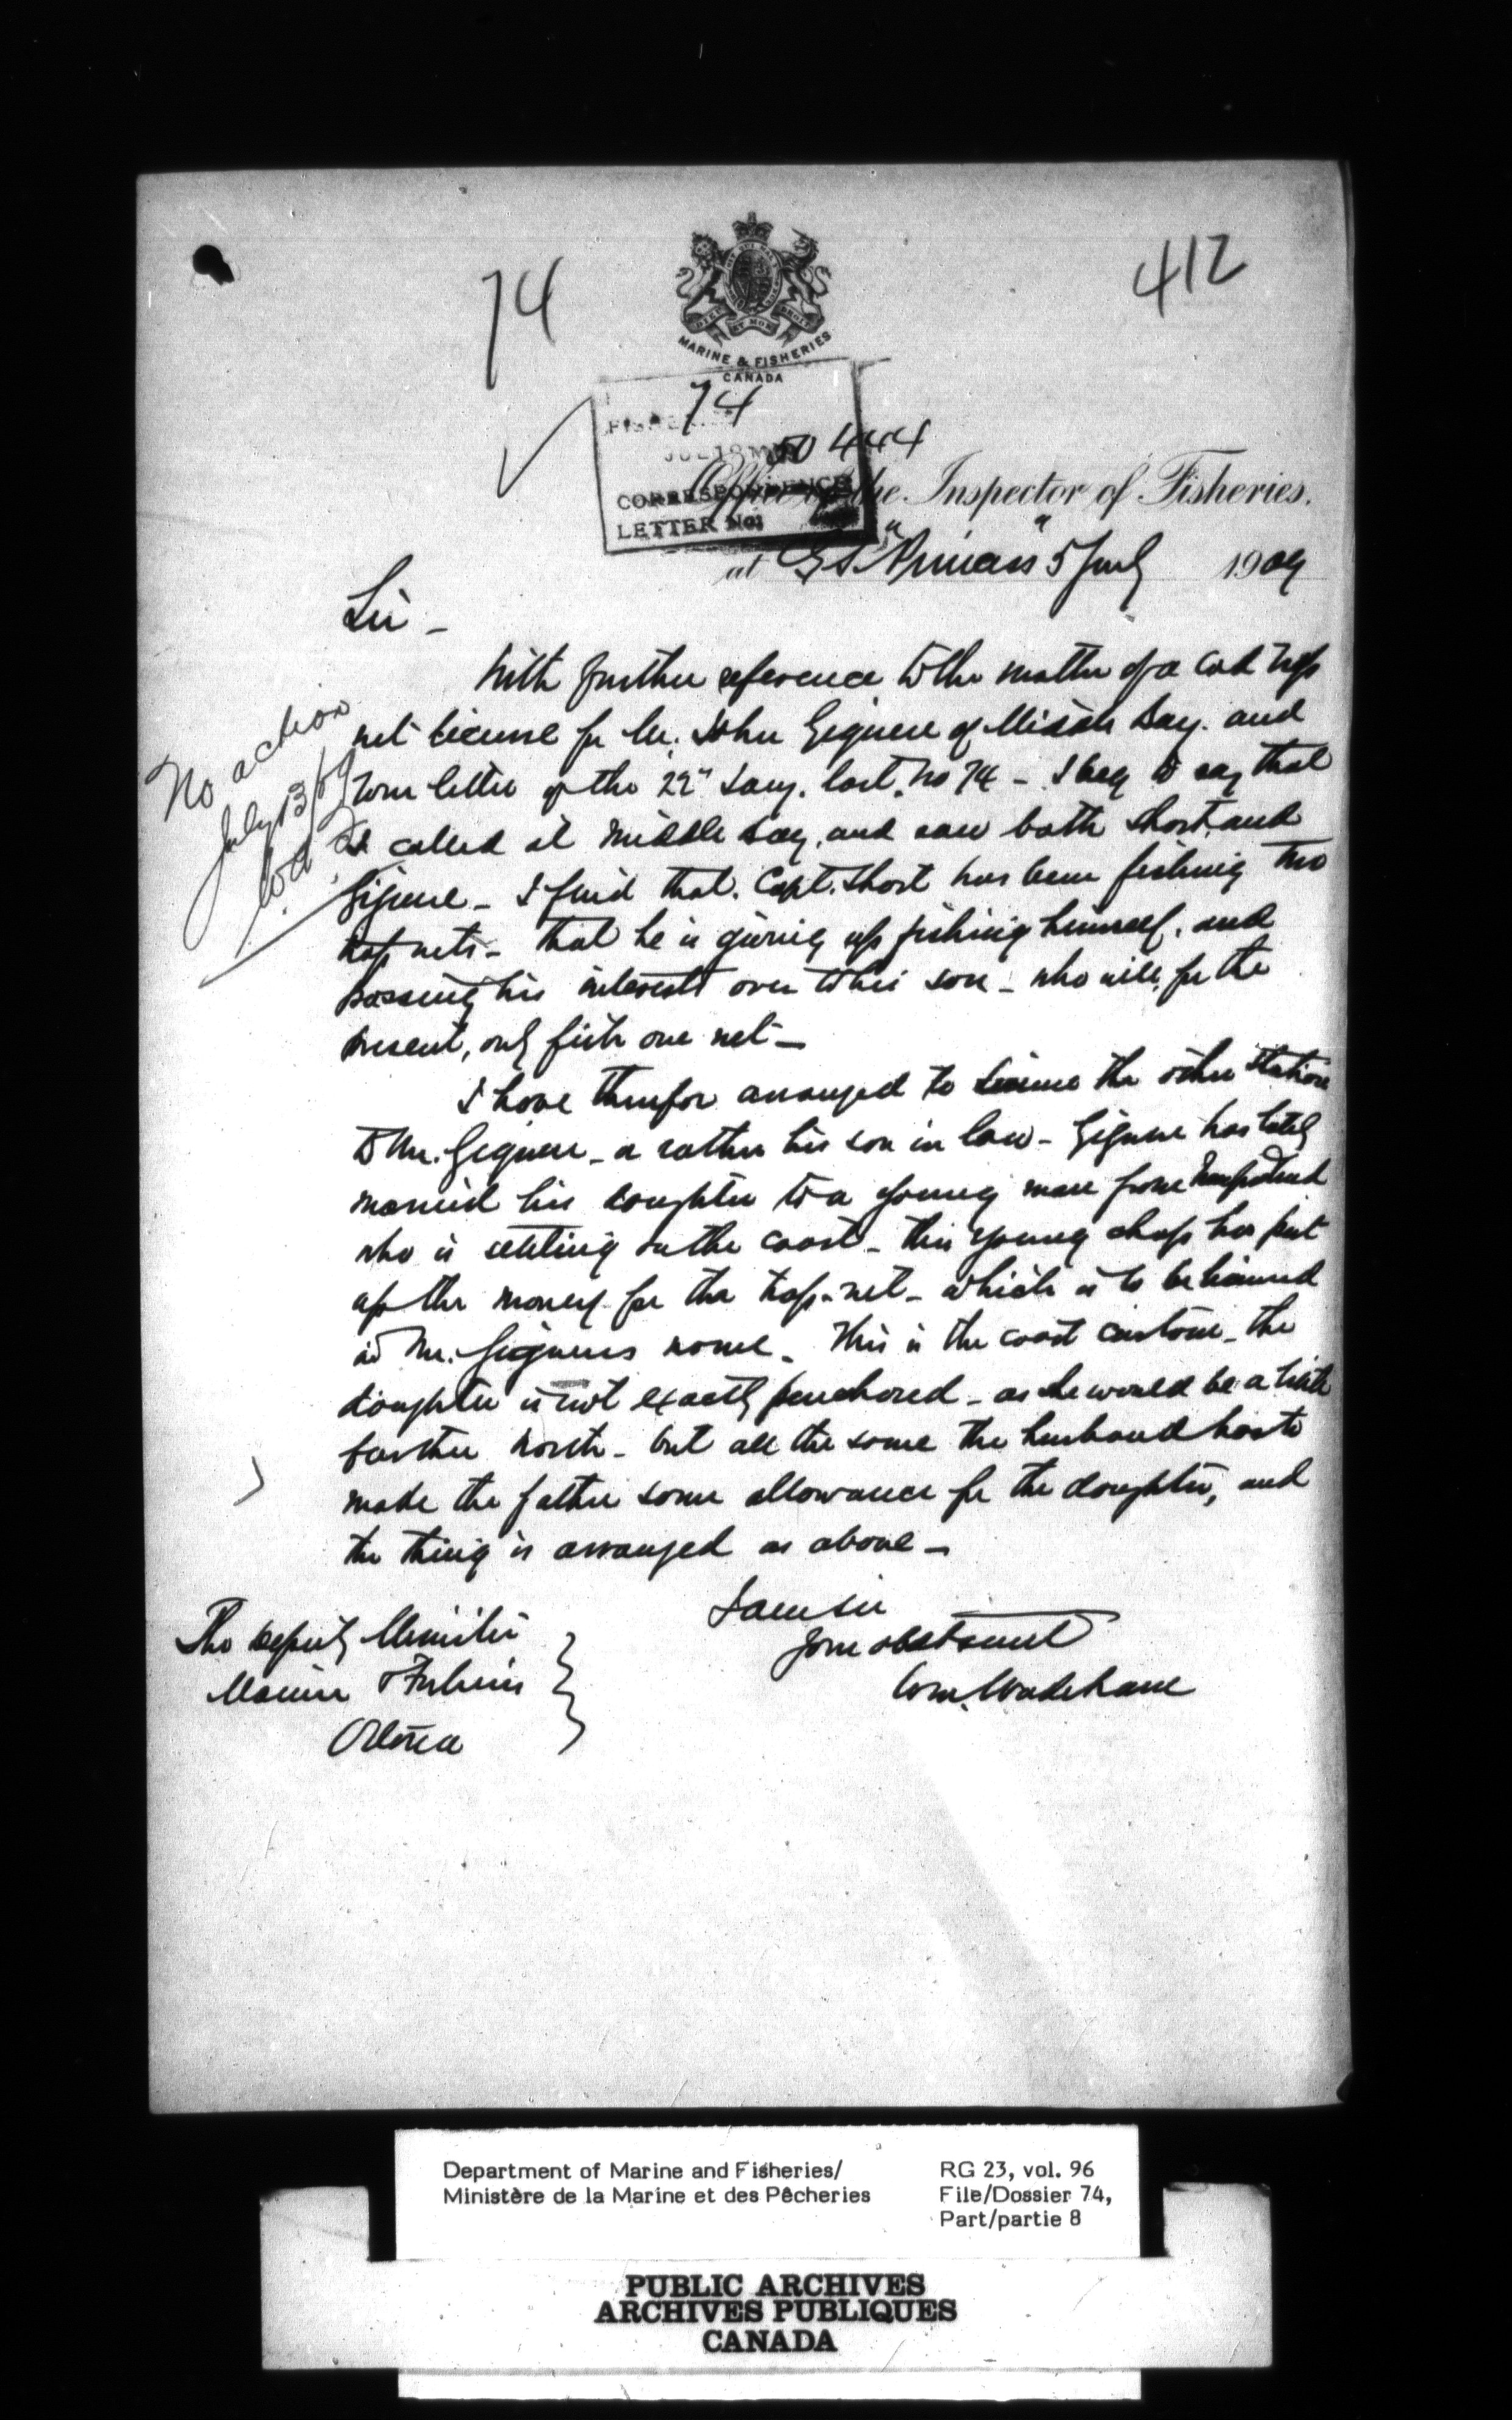 74
412
MARINE & FISHERIES
CANADA
74
50444
CORRESPONDENCE
LETTER No:
Office of the Inspector of Fisheries.
at G S "Princess" 5 July 1909
Sir -
With further reference to the matter of a Cod trap
net license for Mr. John Gignere of Middle Bay. and
Your letter of the 22" Jany. last. No 74 - I beg to say that
I called at Middle Bay, and saw both Short and
Gignere - I find that. Capt. Short has been fishing two
trap nets - that he is giving up fishing himself, and
passing his interests over to his son - who will, for the
present, only fish one net -
I have therefor arranged to license the other station
to Mr. Gignere - or rather his son in law - Gignere has lately
married his daughter to a young man from Newfoundland
who is settling on the coast - this young chap has put
up the money for the trap-net - which is to be licensed
in Mr. Gigneres name - This is the coast custom - the
daughter is not exactly purchased - as she would be a little
farther North - but all the same the husband has to
made the father some allowance for the daughter, and
the thing is arranged as above -
I am Sir
Your obt Servant
Wm. Wakeham
The Deputy Minister
Marine & Fisheries
Ottawa
No action
July 13/09
Department of Marine and Fisheries/
Ministère de la Marine et des Pêcheries
RG 23, vol. 96
File/Dossier 74,
Part/partie 8
PUBLIC ARCHIVES
ARCHIVES PUBLIQUES
CANADA